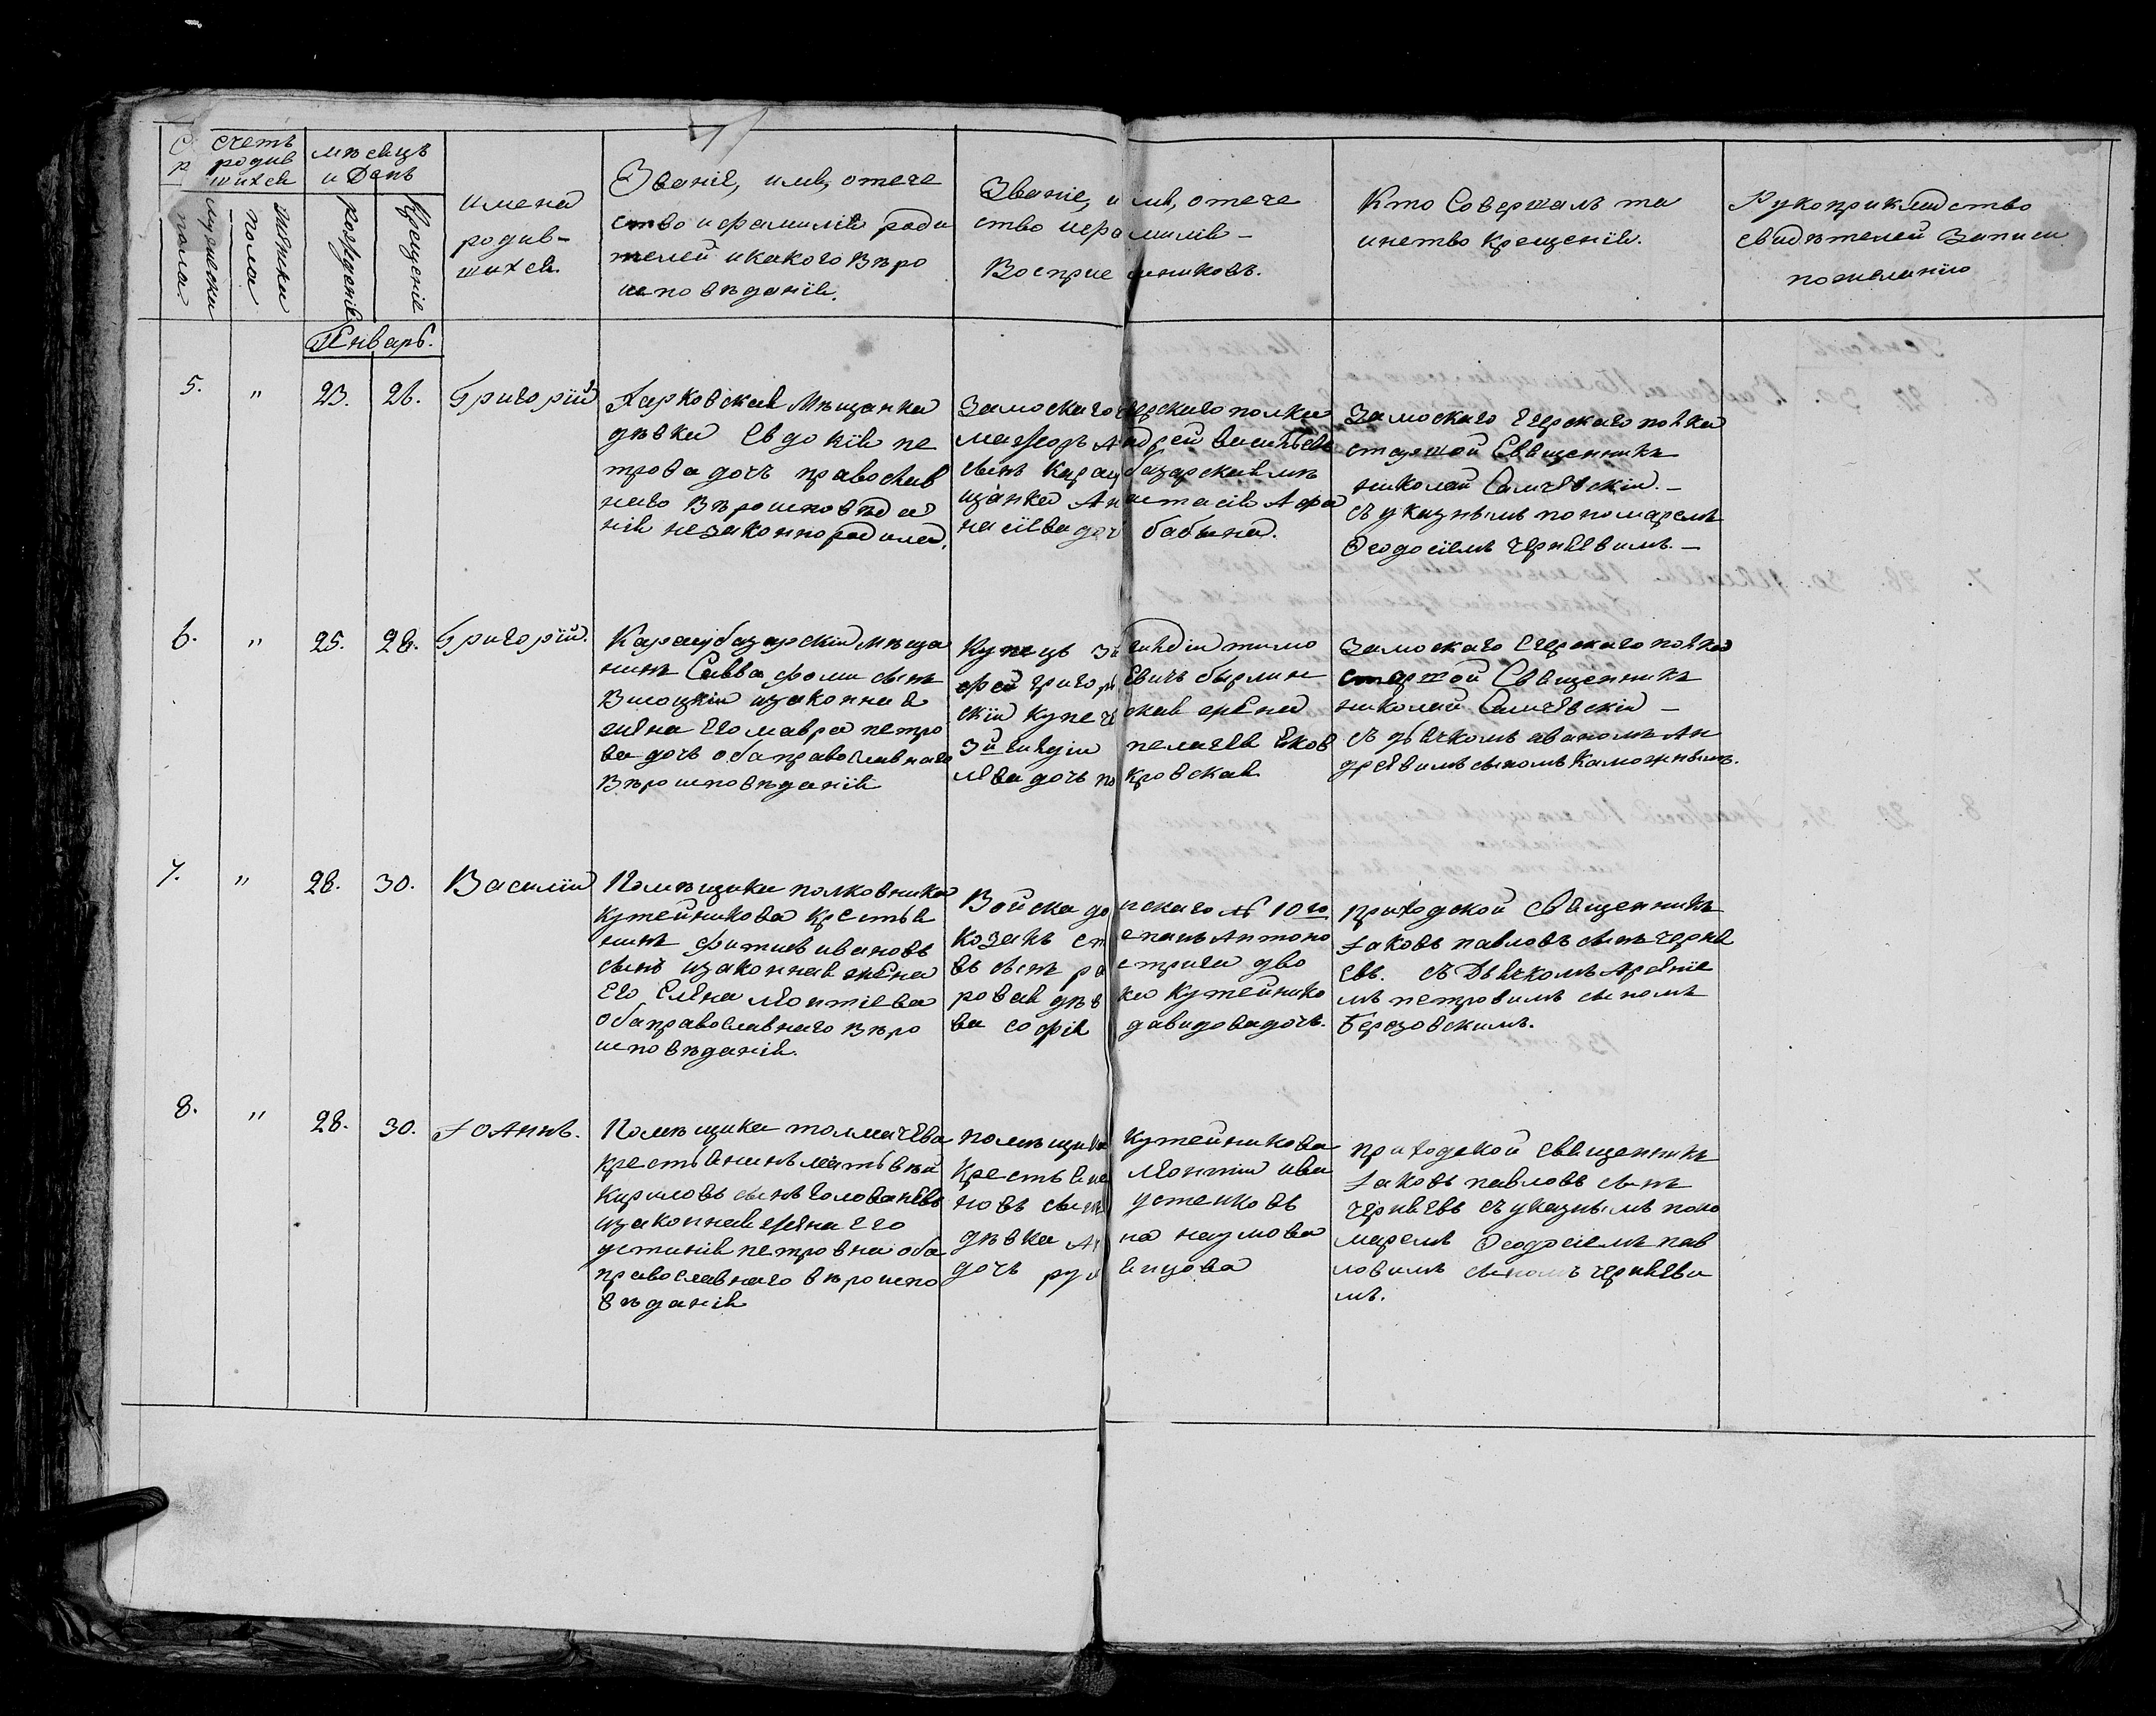 счетъ
родив
шихся
мѣсяцъ
и День
мужеска
пола.
женска
пола
рожденія
Крещенія
имена
родив-
шихся.
Званіе, имя, отече
ство и фамилія роди
телей и какого вѣро
исповѣданія.
Званіе, имя, отече
ство и фамилія -
Восприемниковъ.
Кто Совершалъ та
инство крещенія.
Рукоприкладство
свидѣтелей записи
по желанію
Генварь.
5.
"
23.
26.
Григорій
Харковская Мѣщанка
дѣвка Евдокія пе
трова дочъ православ
наго вѣроисповѣда
нія незаконно родила.
Замоскаго Егерскаго полка
маиоръ Андрей васильевъ
сынъ Карасубазарская мѣ
щанка Анастасія Афа
насіева дочъ бабына.
Замоскаго Егерскаго полка
старшой Священникъ
николай Саличевскій. -
съ указнымъ пономаремъ
Ѳеодосіемъ Чернявимъ. -
6.
"
25.
28.
Григорій.
Карасубазарскій мѣща
нинъ Савва фоми сынъ
Висоцкій изаконная
жена его мавра петро
ва дочъ оба православнаго
Вѣроисповѣданія
Купецъ 3й гилдіи тимо
фей григорьевичъ бырлин
скій купеческая жена
3й гилдіи пелагея яков
лева дочъ покровская.
Замоскаго Егерскаго полка
старшой Священникъ
николай Саличевскій -
съ дьячкомъ иваномъ Ан
дреевимъ сыномъ Каложнымъ.
7.
"
28.
30.
Василій
Помѣщика полковника
кутейникова крестья
нинъ фитисъ ивановъ
сынъ изаконная жена
его Елена леонтіева
оба православнаго вѣро
исповѣданія.
Войска донскаго № 10го
козакъ степанъ Антоно
въ сынъ
ровая дѣвка Кутейнико
ва софія давидова дочъ.
приходской священникъ
Іаковъ павловъ сынъ черня
евъ. съ Дьячкомъ Арсеніе
мъ петровимъ сыномъ
Березовскимъ.
8.
"
28.
30.
Іоаннъ.
Помѣщика толмачева
крестьянинъ матьвѣй
Кириловъ сынъ Голованевъ
изаконная жена его
устинія петровна оба
православнаго вѣроиспо
вѣданія
помѣщика Кутейникова
Крестьянинъ леонтій ива
новъ сынъ устенковъ
дѣвка Анна наумова
дочъ
приходской священникъ
Іаковъ павловъ сынъ
чернявъ съ указнымъ поно
маремъ Ѳеодосіемъ пав
ловимъ сыномъ чернявы
мъ.